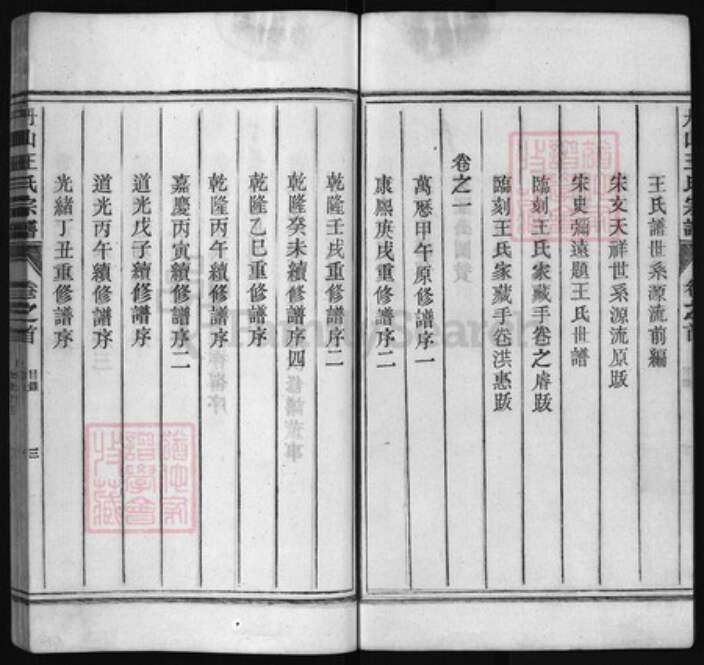 王氏譜世系源流前編
宋文天祥世系源流原跋
宋史彌遠題王氏世譜
臨刻王氏家藏手卷之睿跋
臨刻王氏家藏手卷洪惠跋
卷之一
萬曆甲午原修譜序一
康熙庚戌重修譜序二
乾隆壬戌重修譜序二
乾隆癸未續修譜序四
乾隆乙巳重修譜序
乾隆丙午續修譜序
嘉慶丙寅續修譜序二
道光戊子續修譜序
道光丙午續修譜序
光緒丁丑重修譜序
丹山王氏宗譜
卷之首
目錄
三
FamilySearch